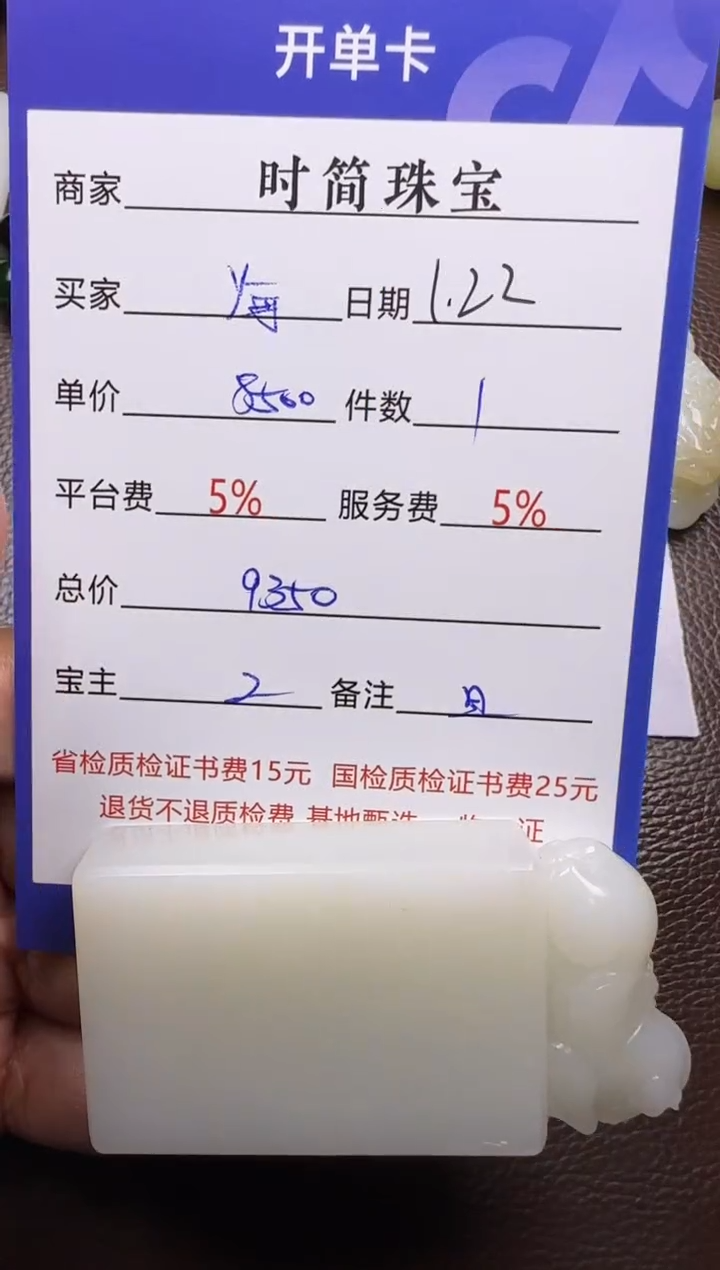 开单卡
商家 时简珠宝
买家 海 日期 1.22
单价 8500 件数 1
平台费 5% 服务费 5%
总价 9350
宝主 2 备注
省检质检证书费15元 国检质检证书费25元
退货不退质检费 基地甄选 证